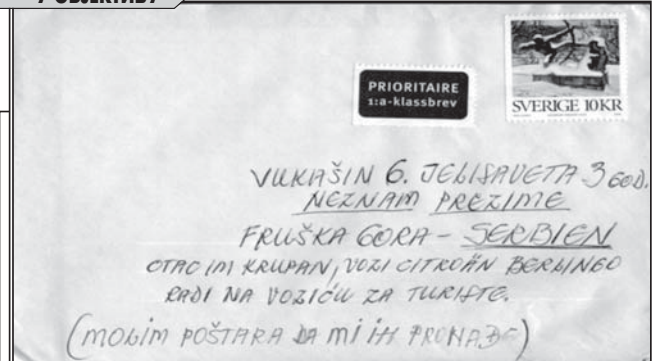 U OBJEKTIVU
PRIORITAIRE
1:a-klassbrev
SVERIGE 10KR
VUKAŠIN 6. JELISAVETA 3 GOD.
NEZNAM PREZIME
FRUŠKA GORA - SERBIEN
OTAC IM KRUPAN, VOZI CITROÄN BERLINGO
RADI NA VOZIĆU ZA TURISTE.
(MOLIM POŠTARA DA MI IH PRONAĐE)